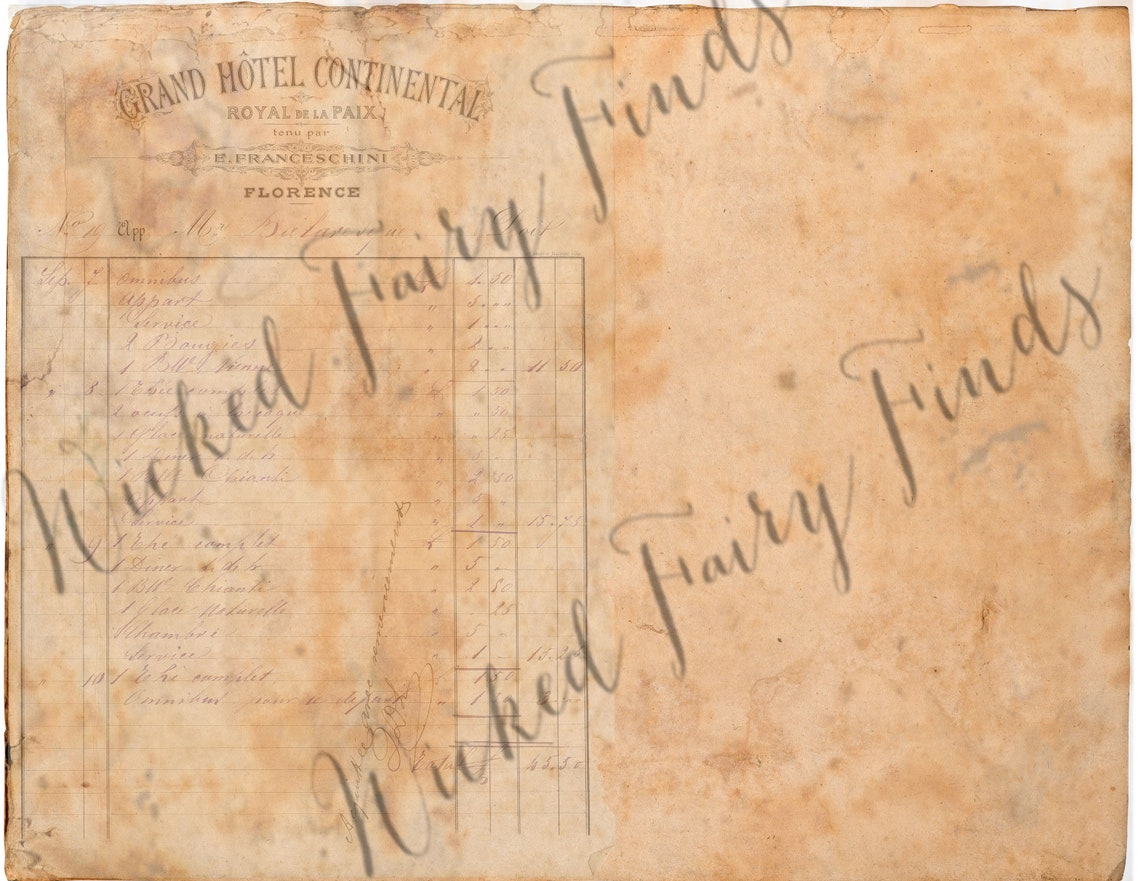 GRAND HÔTEL CONTINENTAL
ROYAL DE LA PAIX
tenu par
E. FRANCESCHINI
FLORENCE
No 19 App. Mr Doit
Sep. 7 Omnibus 1.50
Appart " 5 " "
Service " 1 " "
2 Bougies " 2 " "
1 Btlle 2 " 11 50
" 8 1 Thé complet 1 50
2 oeufs " 50
1 Glace naturelle " " 25
1 diner " 5 "
1 Chianti " 2 50
Appart " 5 "
Service " 1 " 15.75
" 9 1 Thé complet 1 50
1 Diner t. d. h. " 5 "
1 Btlle Chianti " 2 50
1 Glace Naturelle " " 25
Chambre " 5 "
Service " 1 "
" 10 1 Thé complet 1 50
Omnibus pour le départ " 1
43.50
remerciements
Wicked Fairy Finds
Wicked Fairy Finds